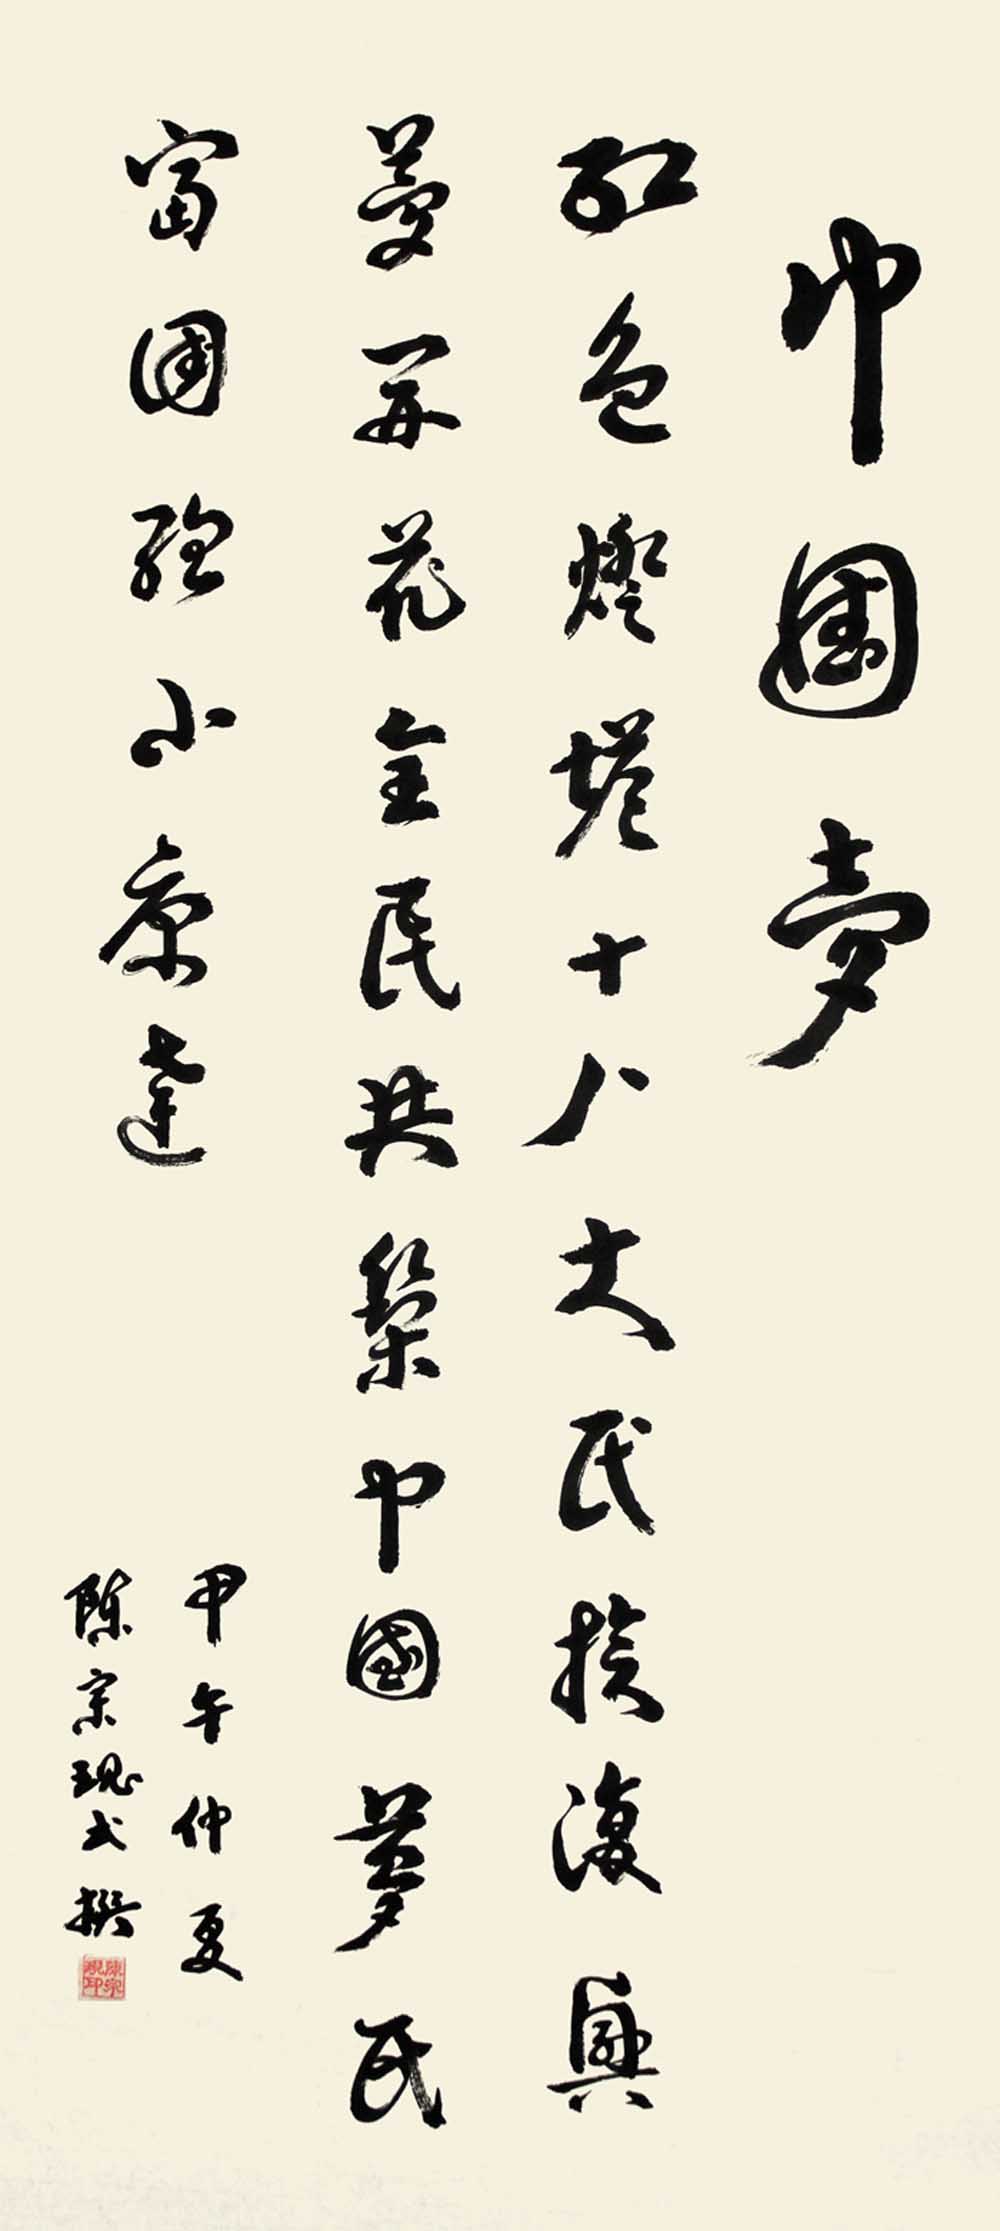 中國夢
紅色燈塔十八大民族復興
夢開花全民共築中國夢民
富國強小康達
甲午仲夏
陳宗現弋撰
陳宗現印